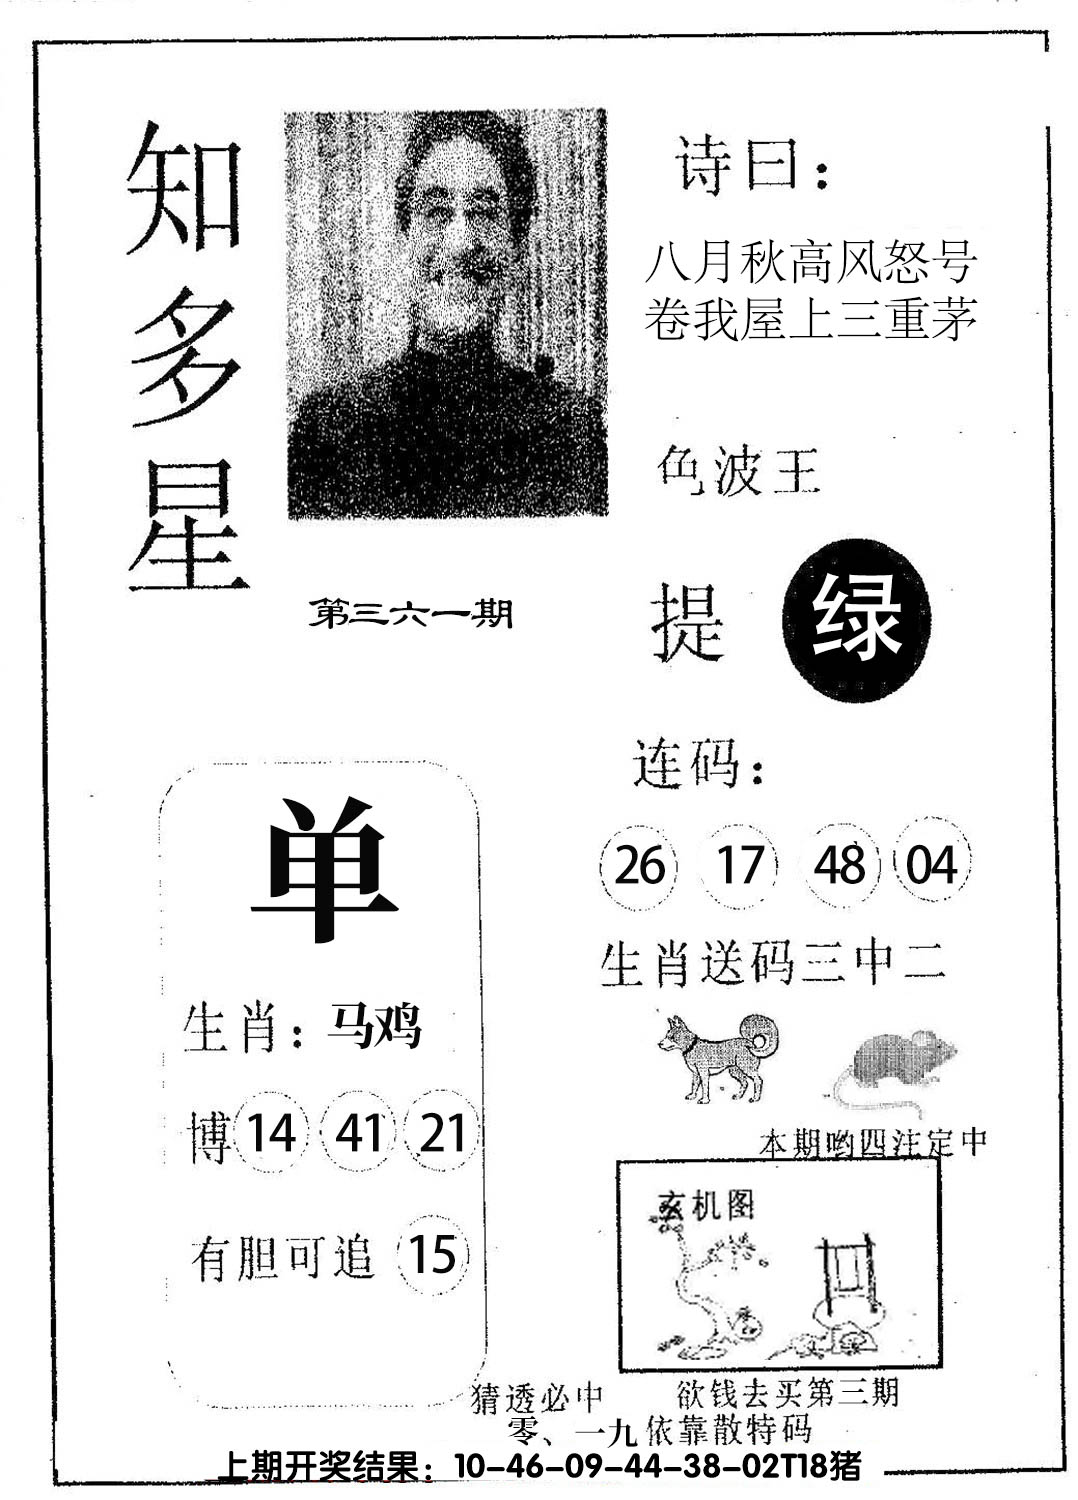 知多星
第三六一期
诗曰：
八月秋高风怒号
卷我屋上三重茅
色波王
提 绿
连码：
26 17 48 04
生肖送码三中二
本期哟四注定中
单
生肖：马鸡
博 14 41 21
有胆可追 15
玄机图
猜透必中 欲钱去买第三期
零、一九依靠散特码
上期开奖结果：10-46-09-44-38-02T18猪